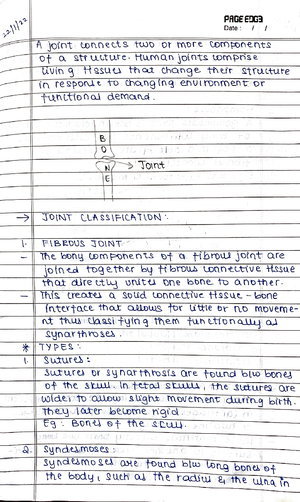 PAGE EDGE
Date : / /
22/11/22
A joint connects two or more components
of a structure. Human joints comprise
living tissues that change their structure
in response to changing environment or
functional demand.
B
O
N
E
→ Joint
→ JOINT CLASSIFICATION:
1. FIBROUS JOINT
- The bony components of a fibrous joint are
joined together by fibrous connective tissue
that directly unites one bone to another.
- This creates a solid connective tissue - bone
interface that allows for little or no moveme-
nt thus classifying them functionally as
synarthroses.
* TYPES:
1. Sutures:
Sutures or synarthrosis are found b/w bones
of the skull. In fetal skulls, the sutures are
wider to allow slight movement during birth.
They later become rigid.
Eg: Bones of the skull.
2. Syndesmoses:
Syndesmoses are found b/w long bones of
the body, such as the radius & the ulna in